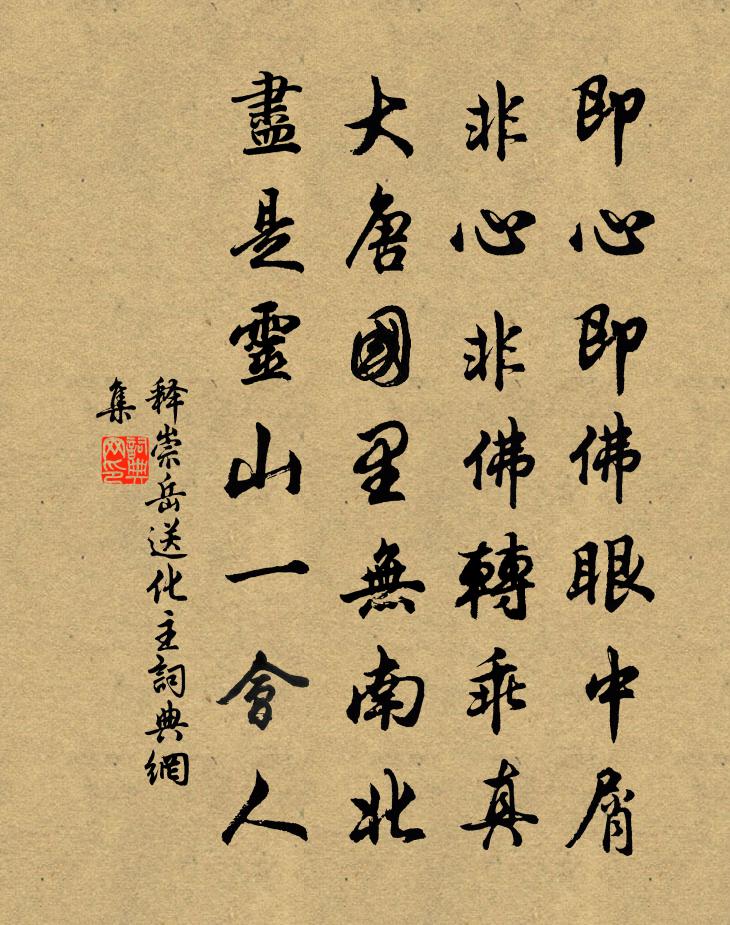 即心即佛眼中屑
非心非佛轉乖真
大唐國里無南北
盡是靈山一會人
释崇岳送化主詞典網
集
詞典
网印